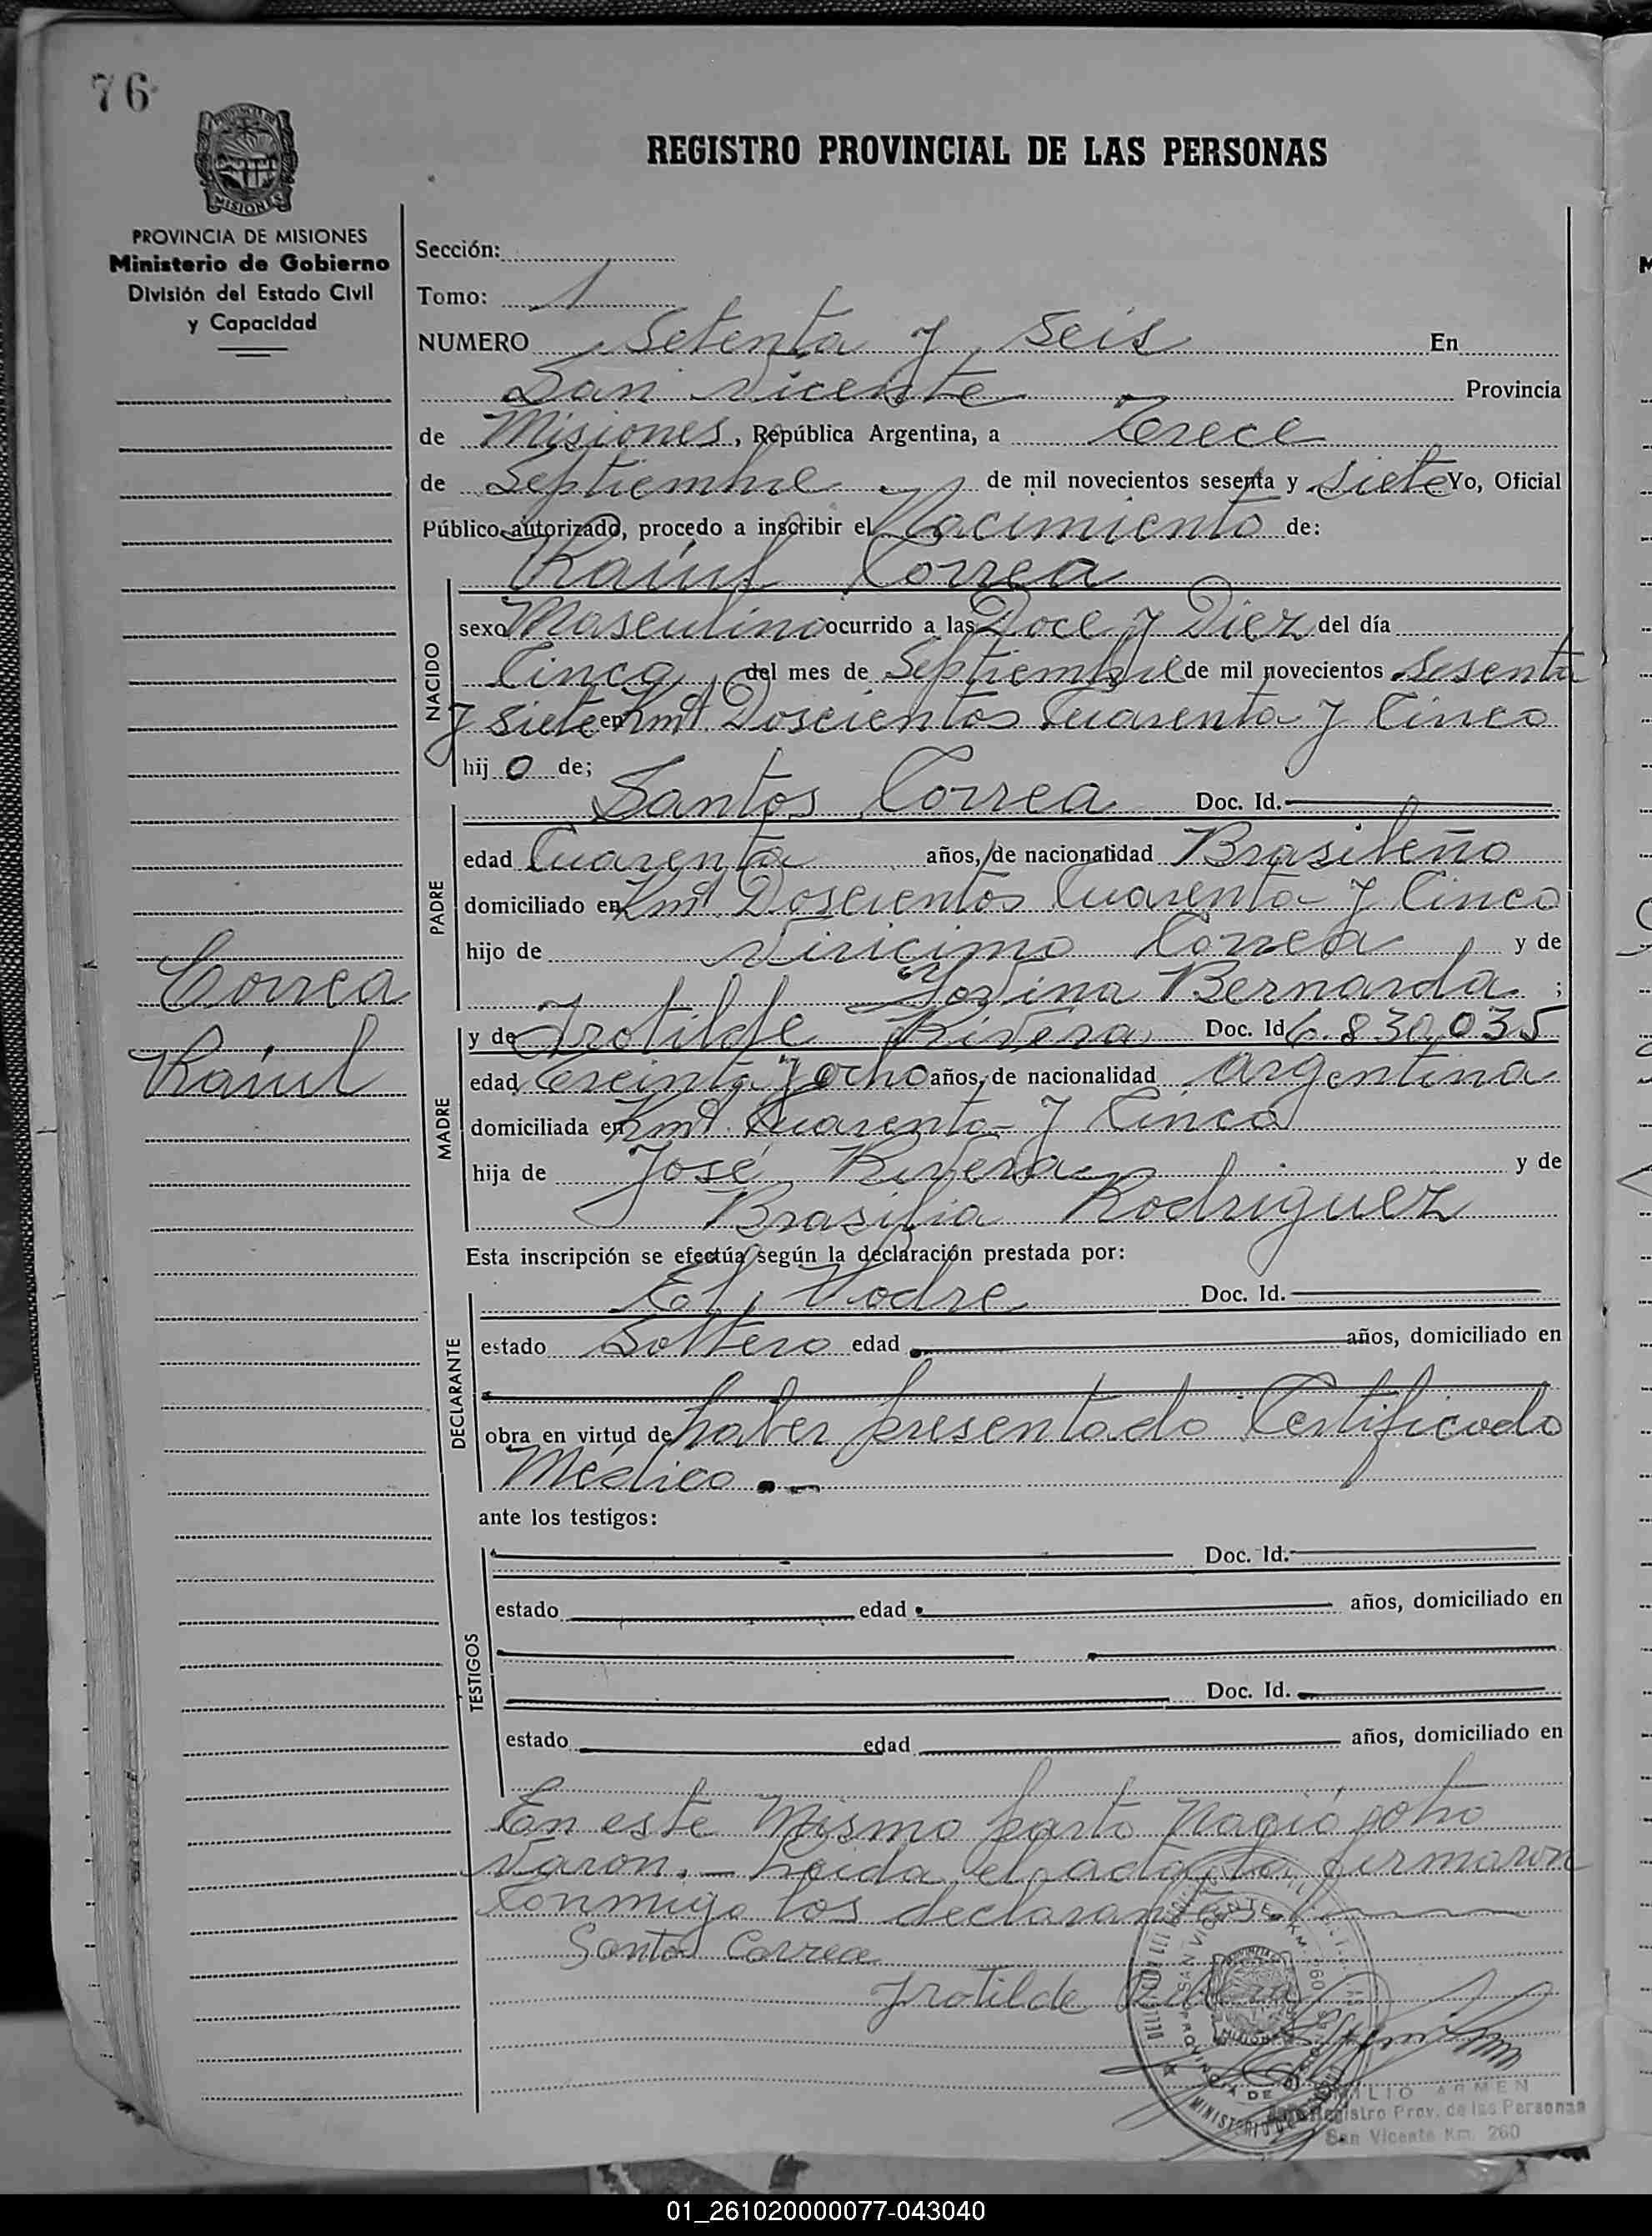 76
PROVINCIA DE MISIONES
Ministerio de Gobierno
División del Estado Civil
y Capacidad
REGISTRO PROVINCIAL DE LAS PERSONAS
Sección:
Tomo: 1
NUMERO Setenta y seis En
San Vicente Provincia
de Misiones, República Argentina, a Trece
de Septiembre de mil novecientos sesenta y siete Yo, Oficial
Público autorizado, procedo a inscribir el Nacimiento de:
Raúul Correa
NACIDO
sexo Masculino ocurrido a las Doce y Diez del día
Cinco del mes de Septiembre de mil novecientos sesenta
y siete en Kmº. Doscientos Cuarenta y Cinco
hijo de;
PADRE
Santos Correa Doc. Id.
edad Cuarenta años, de nacionalidad Brasileño
domiciliado en Kmº. Doscientos Cuarenta y Cinco
hijo de Viricimo Correa y de
Bernarda ;
Correa
Raúul
MADRE
y de Irotilde Rivera Doc. Id 6.830.035
edad Treinta y ocho años, de nacionalidad Argentina
domiciliada en Kmº. Cuarenta y Cinco
hija de José Rivera y de
Brasilia Rodriguez
Esta inscripción se efectúa según la declaración prestada por:
DECLARANTE
El Padre Doc. Id.
estado Soltero edad años, domiciliado en
obra en virtud de haber presentado Certificado
Médico.-
ante los testigos:
TESTIGOS
Doc. Id.
estado edad años, domiciliado en
Doc. Id.
estado edad años, domiciliado en
En este Mismo parto Nació otro
varon.- Leida el acta la firmaron
Conmigo los declarantes
Santos Correa
Irotilde
SAN VICENTE KM. 260
PROVINCIA DE MISIONES
EMILIO ARMEN
Registro Prov. de las Personas
San Vicente Km. 260
01_261020000077-043040